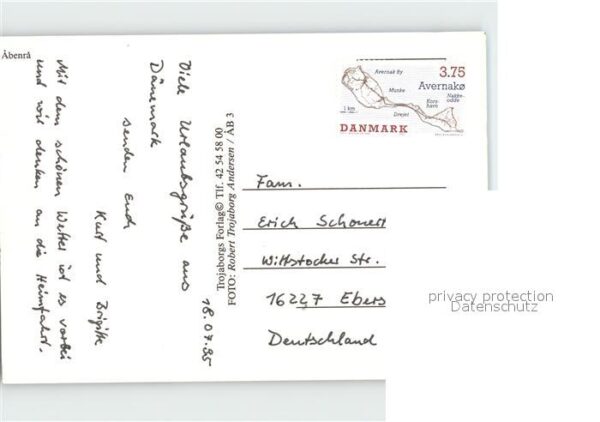 Åbenrå
18.07.95
Viele Urlaubsgrüße aus
Dänemark
senden Euch
Kurt und Brigitte
Mit dem schönen Wetter ist es vorbei
und wir denken an die Heimfahrt.
Trojaborgs Forlag© Tlf. 42 54 58 00
FOTO: Robert Trojaborg Andersen / ÅB 3
3.75
Avernakø
Avernak By
Munke
Korshavn
Nakkeodde
Drejet
1 km
DANMARK
Fam.
Erich Schonert
Wittstocker Str.
16227 Ebers
Deutschland
privacy protection
Datenschutz